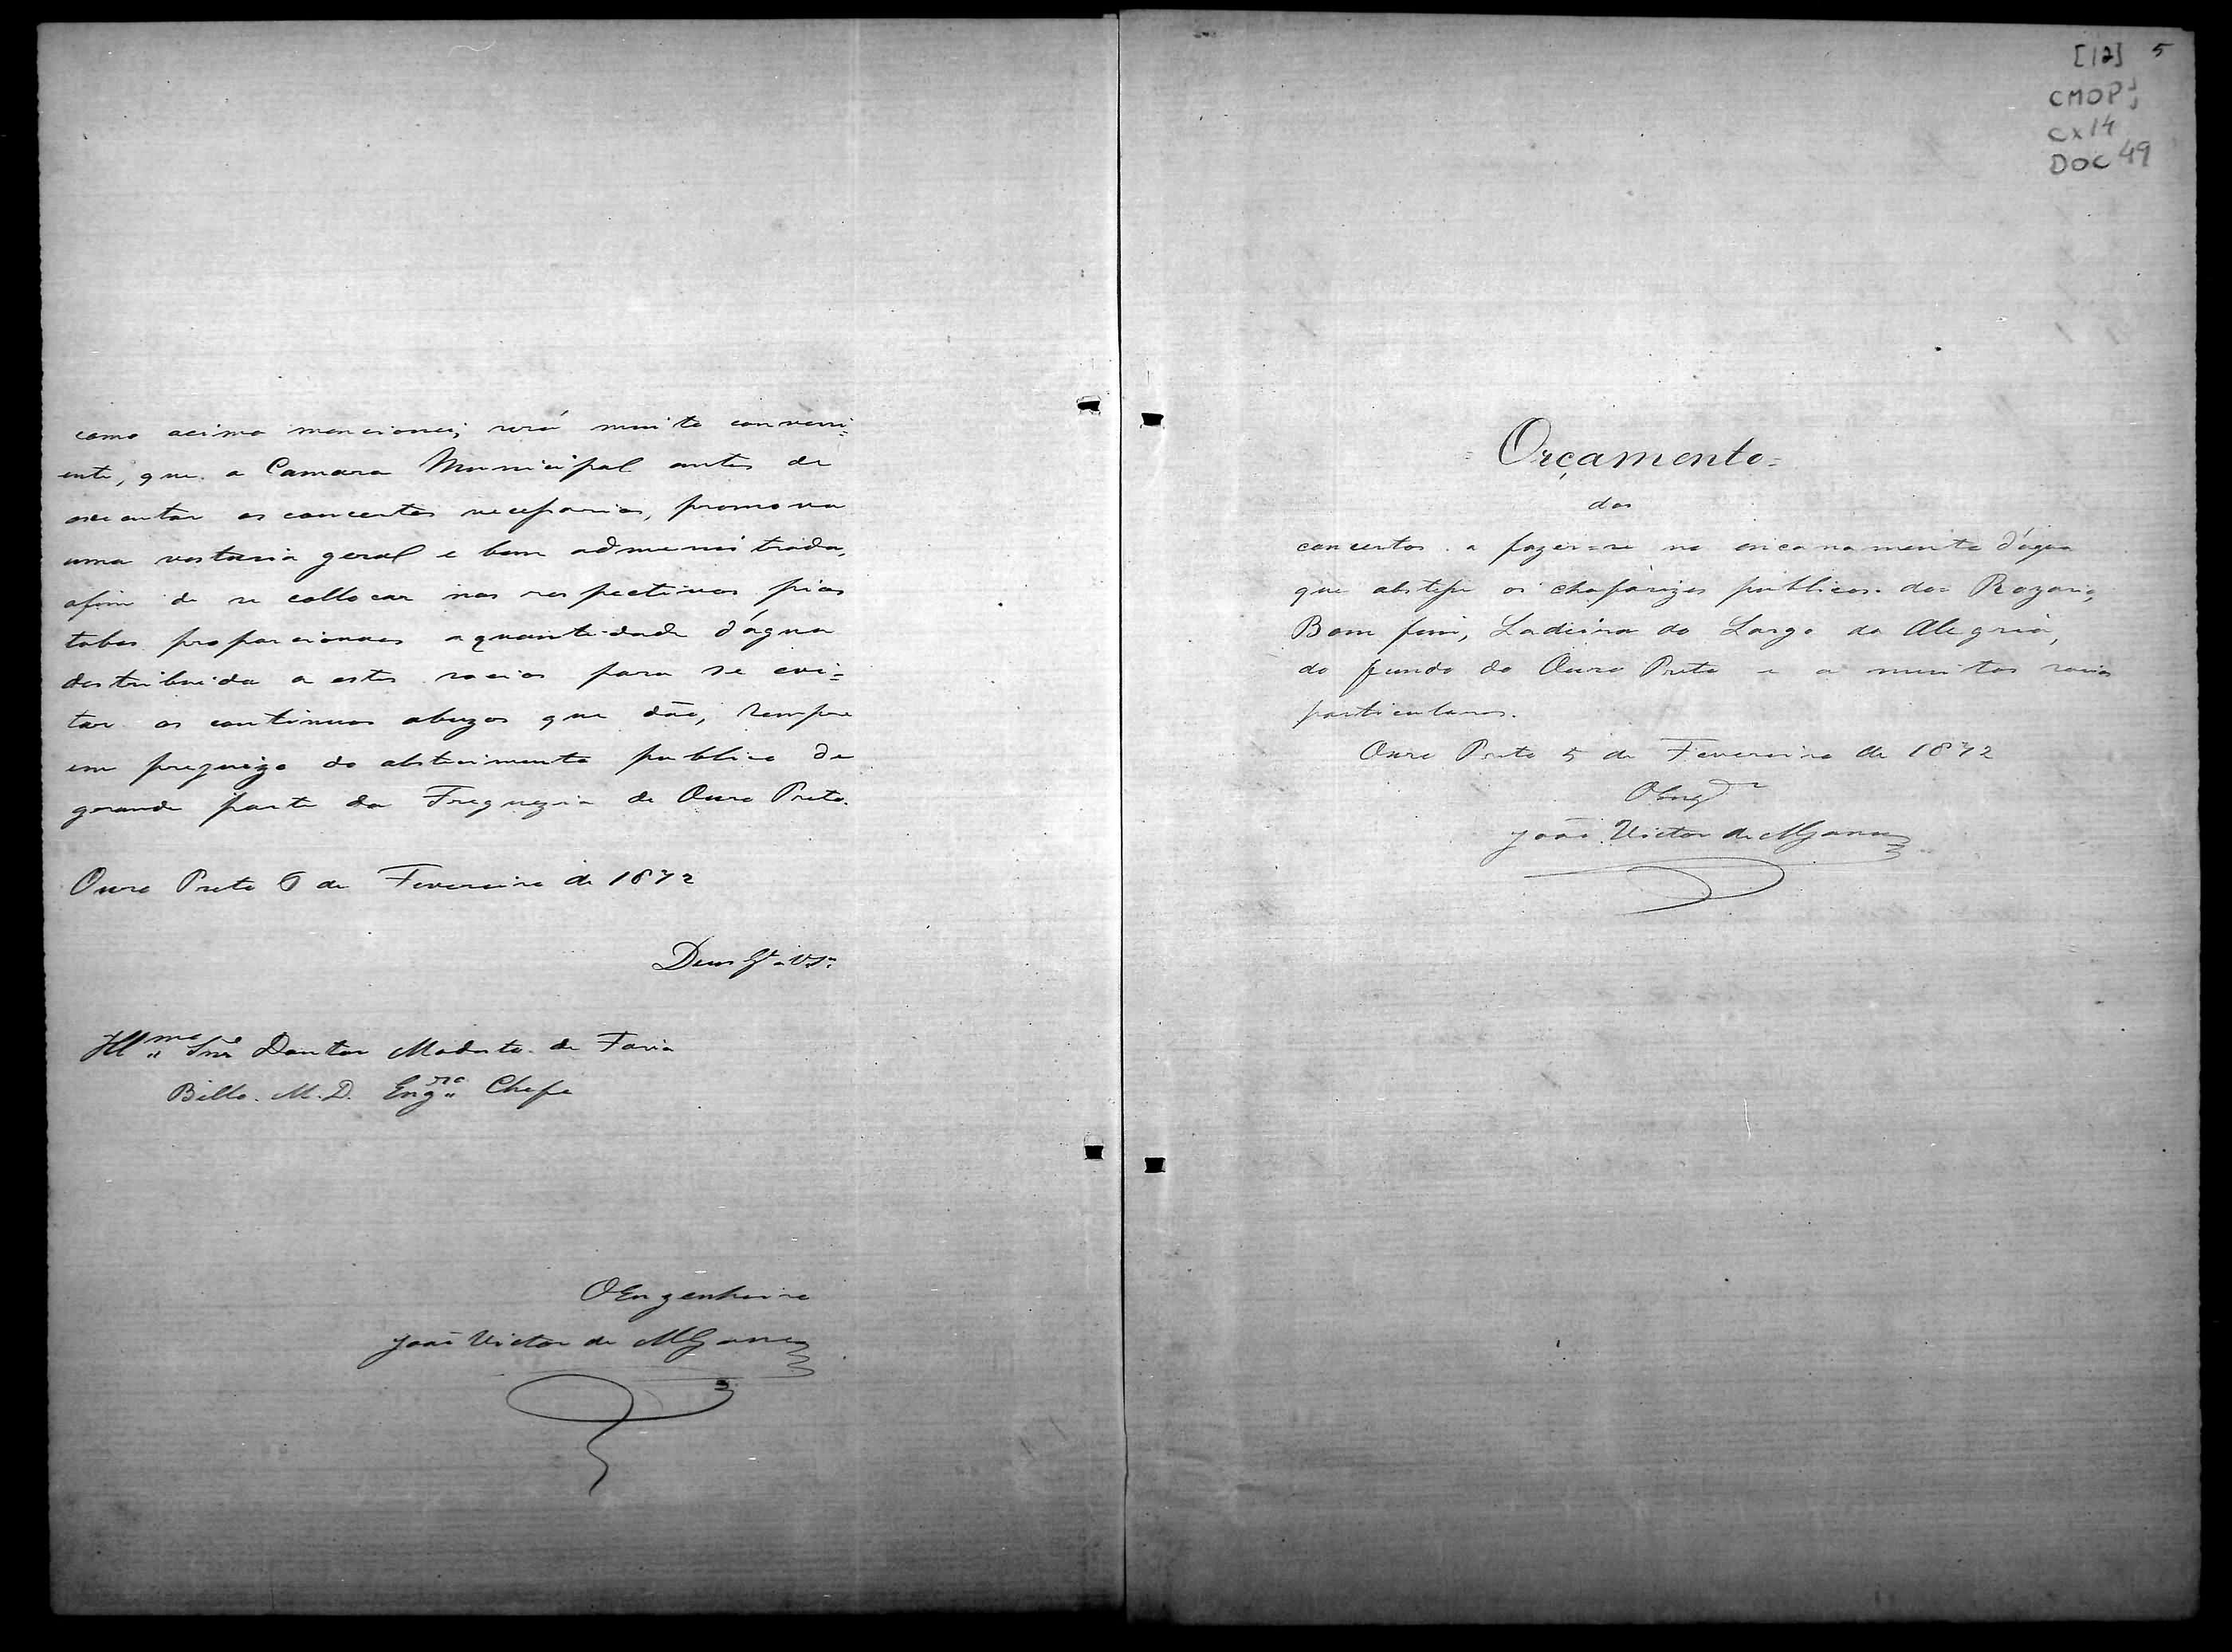 como acima mencionei, será muito conveni=
ente, que a Camara Municipal antes de
executar os concertos necessarios, promova
uma vistoria geral e bem admenistrada,
afim de se collocar nas respectivas pias
tubos proporcionaes a quantidade d'agua
destribuida a estes socios para se evi=
tar os continuos abuzos que dão, sempre
em prejuizo do abstecimento publico de
grande parte da Freguezia de Ouro Preto.
Ouro Preto 6 de Fevereiro de 1872
Deus G.e a V.S.a
Ill.mo Snr Doutor Modesto de Faria
Bello. M. D. Eng.ro Chefe
O Engenheiro
João Victor de
[12] 5
CMOP
CX 14
DOC 49
= Orçamento =
dos
concertos a fazer-se no encanamento d'agua
que abstesse os chafarizes publicos do Rozario,
Bom fim, Ladeira do Largo da Alegria,
do fundo do Ouro Preto e a muitos socios
particulares.
Ouro Preto 5 de Fevereiro de 1872
O Eng.ro
João Victor de